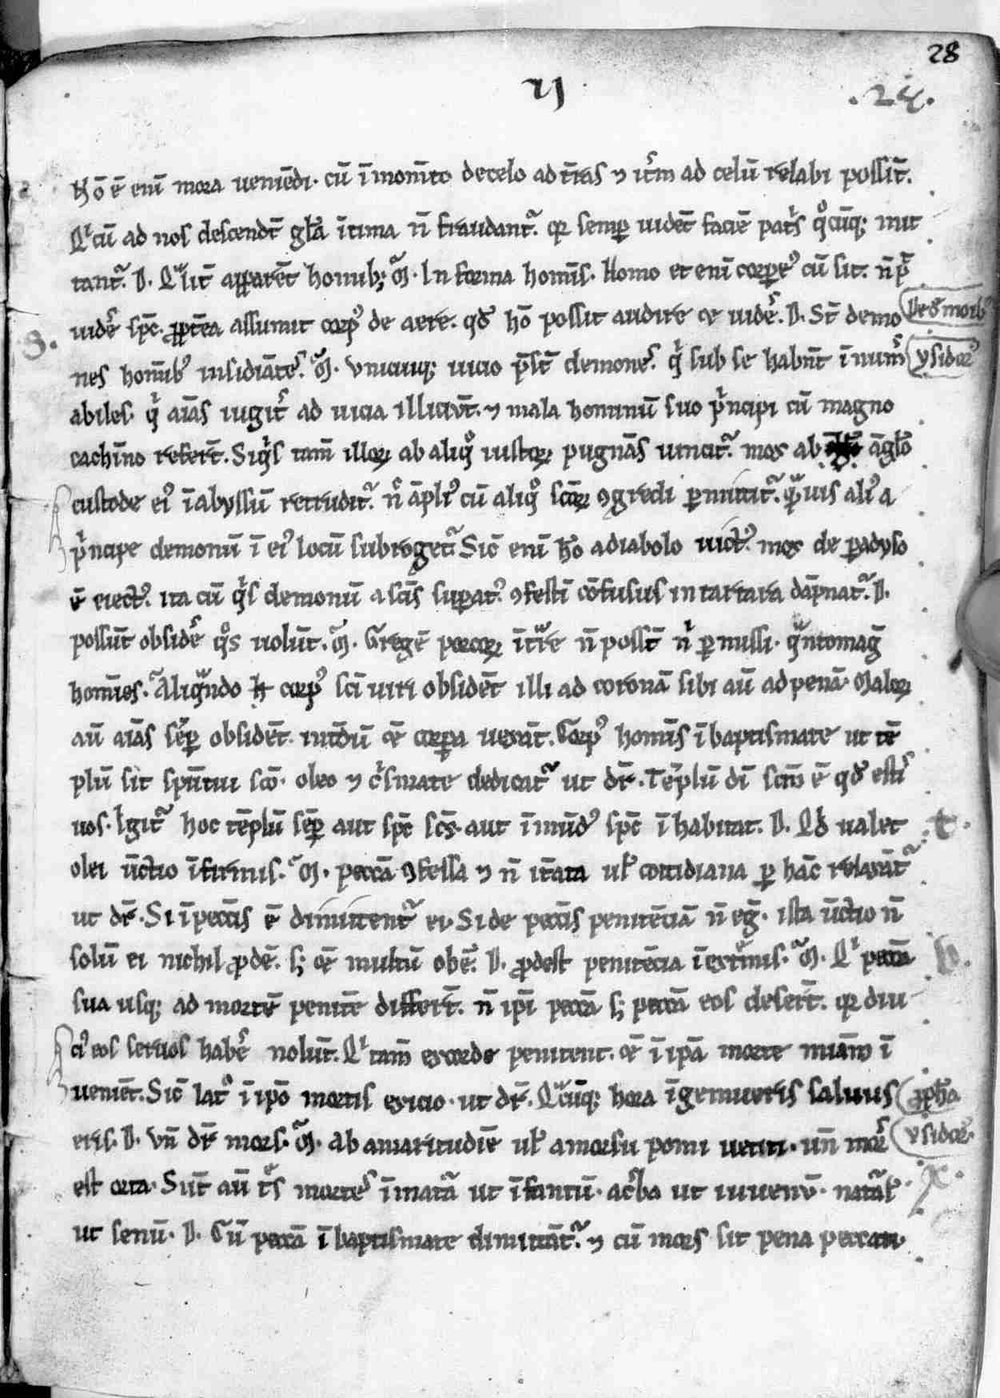 28
vj
.24.
Nō ē enī mora veniēdi. cū ī momēto de celo ad t̄ras ⁊ itm̄ ad celū relabi possīt.
Qi cū ad nos descendūt gl̄a ītima n̄ fraudantᷣ. qr semꝑ vidēt faciē patͥs qͦcūqꝫ mit
tantᷣ. D. Qͣlit̄ apparēt hominibꝫ. M̄. In forma homīs. Homo et enī corporeꝰ cū sit. n̄ pͣ
videͬ spc̄. ꝓpt̄ea assumūt corpꝰ de aere. qd̄ hō possit audire ⁊ videͬ. D. St̄ demo
nes homībꝰ insidiātes. M̄. Vnicuiqꝫ vicio p̄st̄ demones. qͥ sub se habn̄t īnumͬ
abiles. qͥ aīas iugit̄ ad vicia illiciūt. ⁊ mala hominū suo pͥncipi cū magno
cachīno refert̄. Siqͥs tam̄ illoꝝ ab aliqͦ iustoꝝ pugnās vincitᷣ. mox ab āgl̄o
custode eiꝰ ī abyssū retruditᷣ. nͨ āpliꝰ cū aliqͦ sc̄oꝝ ꝯgredi ꝑmittitᷣ. qͣmuis aliꝰ a
pͥncipe demonū ī eiꝰ locū subrogetᷣ. Sic̄ enī hō a diabolo victꝰ. mox de paradyso
ē eiectꝰ. ita cū qͥs demonū a sc̄is suꝑatꝰ. ꝯfestī cōfusus in tartara dāpnatᷣ. D.
possūt obsideͬ qͦs volūt. M̄. Gregē porcoꝝ īt̄re n̄ possūt nͥ ꝑmissi. qͣntomag̅
homīes. Aliqͣndo h̄ corpꝰ sc̄i viri obsidēt illi ad coronā sibi aū ad penā. Maloꝝ
aū aīas seꝑ obsidēt. int̄dū ⁊ corꝑa vexāt. Corpꝰ homīs ī baptismate ut tē
plū sit sp̄ritui sc̄o. oleo ⁊ cͥsmate dedicatᷣ ut dr̄. Templū dī scm̄ ē qd̄ estis
vos. Igitᷣ hoc tēplū semꝑ aut spc̄ scs̄. aut īmūdꝰ spc̄ īhabitat. D. Qd̄ valet
olei ūctio īfirmis. M̄. peccā ꝯfessa ⁊ n̄ it̄ata ul̄ cotidiana ꝑ hāc relaxātᷣ
ut dr̄. Si ī peccīs ē dimittentᷣ ei. Si de peccīs penitēciā n̄ eg̅. ista ūctio n̄
solū ei nichil ꝓdē. sꝫ ⁊ multū obē. D. ꝓdest penitēcia ī extͤmis. M̄. Qͥ peccā
sua usqꝫ ad mortē penitē differt̄. n̄ ipī peccā sꝫ peccā eos desert̄. qr diu
ciꝰ eos servos habeͬ nolūt. Qͥ tam̄ ex corde penitent. ⁊ ī ipā morte miām ī
veniēt. Sic̄ latͦ ī ipō mortis exicio. ut dr̄. Qͣcūqꝫ hora īgemueris saluus
eris. D. Vn̄ dr̄ mors. M̄. Ab amaritudīe ul̄ a morsu pomi vetiti. un̄ mors
est orta. Sūt aū tͤs mortes īmatā ut īfantū. ac̄ba ut iuvenū. natāl̄
ut senū. D. Cū peccā ī baptismate dimittātᷣ. ⁊ cū mors sit pena peccati.
ysidorꝰ
ꝓpha
ysidorꝰ